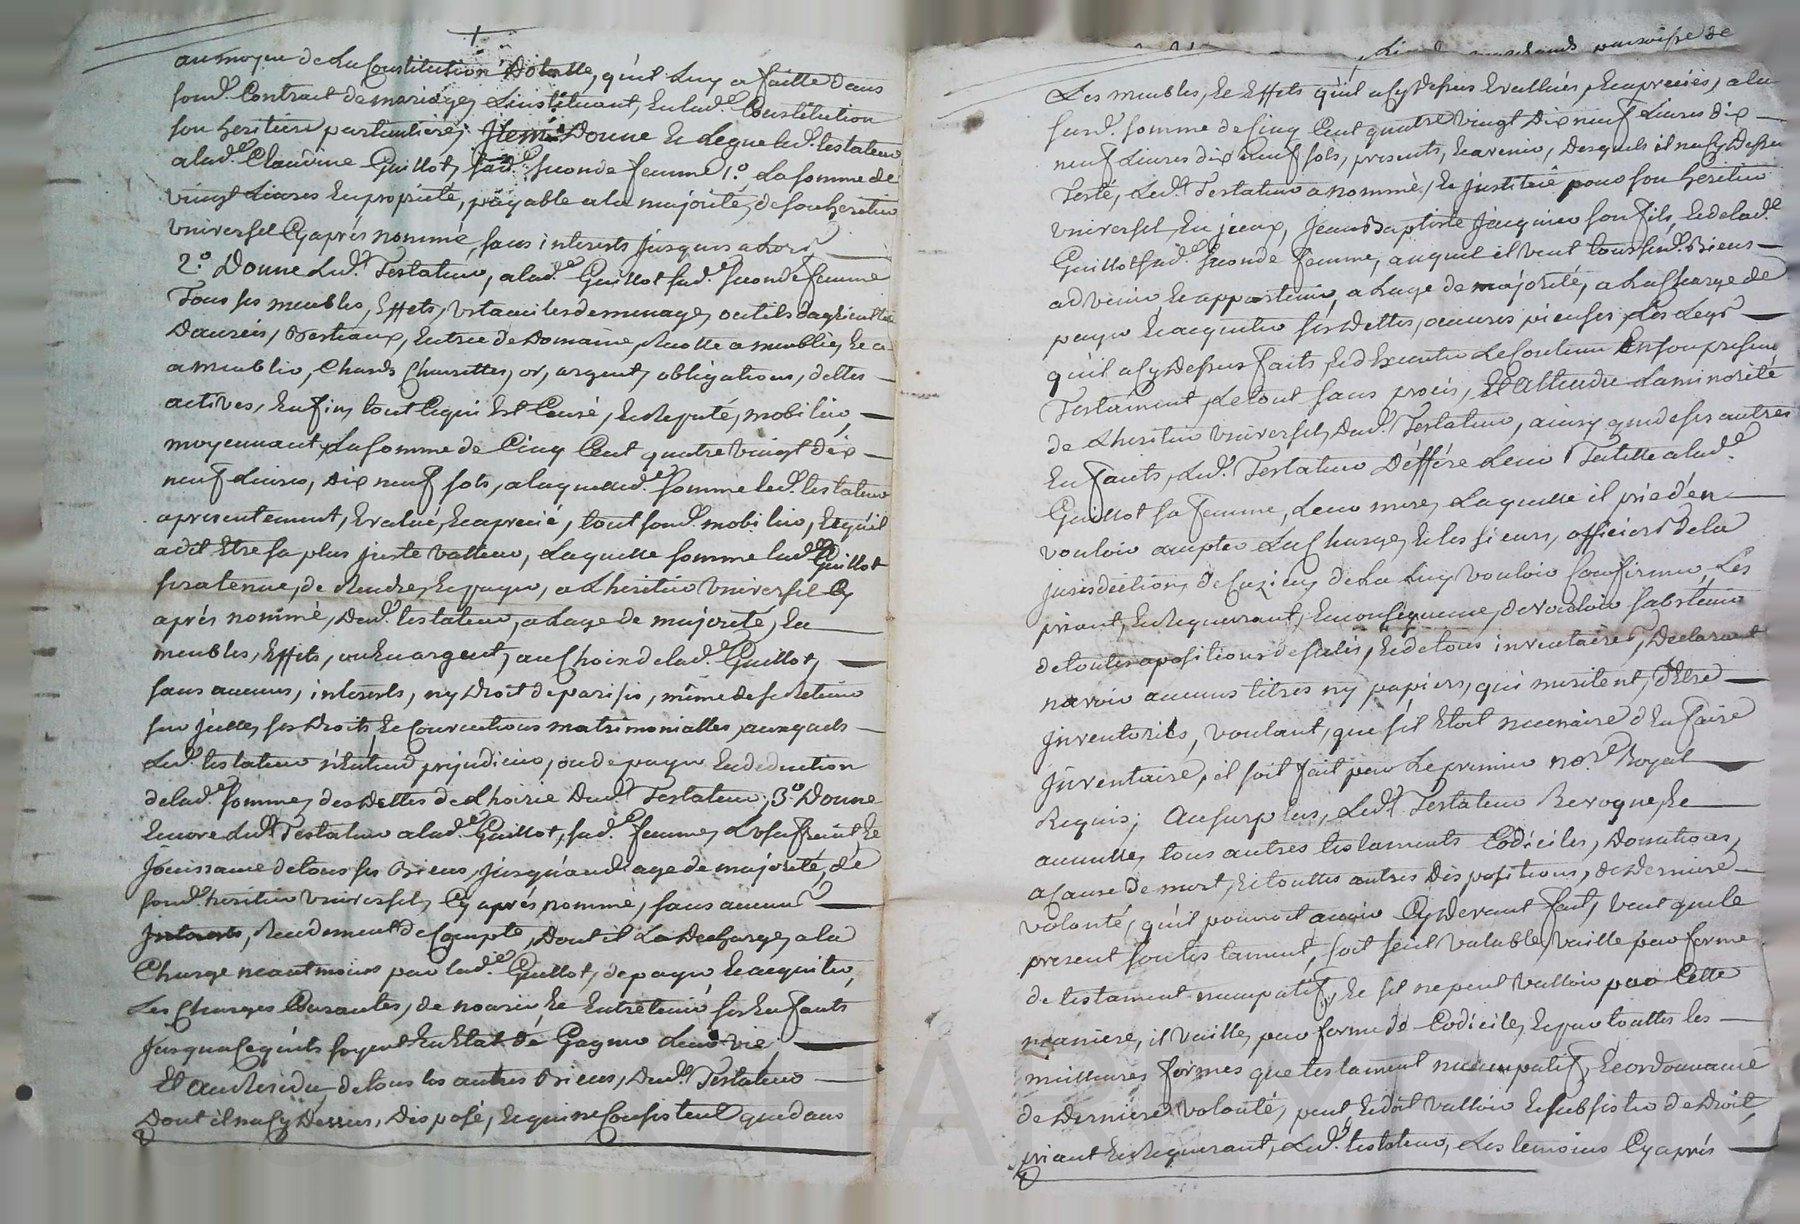 au moyen de La Constitution Dotalle, qu'il Luy a faitte dans
sond. Contrat de mariage, L'instituant, En lad.e Constitution
son heritiere particuliere; Item Donne Et Legue led. testateur
a lad.e Claudine Guillot, sad.e seconde femme 1.o La somme de
vingt Livres En propriété, payable a la majorité, de son heritier
Universel Cy après nommé, sans interests jusques alors
2.o Donne Led. Testateur, a lad.e Guillot sad.e seconde femme
Tous ses meubles, Effets, Ustanciles de menage, outils d'agriculture
Danrées, Bestiaux, Entrée de Domaine, Recolte ameublie, Et a
ameublir, Chards Charrettes, or, argent, obligations, dettes
actives, Enfin, tout Ce qui Est Censé, Et Reputé, mobilier,
moyennant, La somme de Cinq Cent quatre vingt dix
neuf Livres, Dix neuf sols, a laquelle d.e somme led. testateur
a presentement, Evalué, Et aprecié, tout sond. mobilier, Et qu'il
a dit Etre sa plus juste valleur, Laquelle somme lad.e Guillot
sera tenue, de Rendre, Et payer, a L'heritier Universel Cy
après nommé, Dud. testateur, a L'age de majorité, En
meubles, Effets, ou En argent, au Choix de lad.e Guillot,
sans aucuns, interests, ny Droit de parisis, même de se retenir
sur jcelle, ses Droits, Et Conventions matrimonialles auxquels
Led. testateur n'Entend prejudicier, ou de payer En deduction
de lad.e somme, des Dettes de L'hoirie Dud. Testateur; 3.o Donne
Encore Led. Testateur a lad.e Guillot, sad.e femme, L'Usufruit, Et
Jouissance de tous ses Biens, jusqu'aud. age de majorité, de
sond. heritier Universel, Cy après nommé, sans aucuns
Interests, Rendement de Compte, Dont il La Decharge, a la
Charge neantmoins par lad.e Guillot, de payer Et acquitter,
Les Charges Courantes, de nourrir, Et Entretenir ses Enfants
Jusqu'a Ce qu'ils soyent En Etat de Gagner Leur vie;
Et au Residu, de tous les autres Biens, Dud. Testateur
Dont il n'a Cy Dessus, Disposé, Et qui ne Consistent que dans
paroisse de
Les meubles, Et Effets qu'il a Cy Dessus Evallués, Et apreciés, a la
susd. somme de Cinq Cent quatre vingt Dix neuf Livres dix
neuf Livres dix neuf sols, presents, Et avenir, Desquels il n'a Cy Dessus
Testé, Led. Testateur a nommé, Et Justitué pour son heritier
Universel, En jceux, Jean Baptiste Jacquier son fils, Et de lad.e
Guillot sad.e seconde femme, auquel il veut tous sesd. Biens
advenir, Et appartenir, a L'age de majorité, a La Charge de
payer Et acquitter ses Dettes, oeuvres pieuses, Les Legs
qu'il a Cy Dessus faits, Et d'Executer Le Contenu En son present
Testament, Le tout sans procès, Et Attendu La minorité
de L'heritier Universel, Dud. Testateur, ainsy que de ses autres
Enfants, Led. Testateur Déffére Leur Tutelle a lad.e
Guillot sa femme, Leur mere, Laquelle il prie d'en
vouloir accepter La Charge, Et les sieurs, officiers de la
jurisdiction, de de La Luy vouloir Confirmer, Les
priant, Et Requerant, En Consequence, de vouloir s'abstenir
de toutes apositions de scelés, Et de tous inventaires, Declarant
n'avoir aucuns titres ny papiers, qui meritent, d'Etre
Jnventoriés, voulant, que s'il Etoit necessaire d'En faire
Jnventaire, il soit fait par Le premier no.re Royal
Requis; Au surplus, Led. Testateur Revoque, Et
annulle, tous autres testaments Codiciles, Donations,
a Cause de mort, Et touttes autres Dispositions, de Derniere
volonté, qu'il pourroit avoir Cy Devant fait, veut que le
present son testament, soit seul valable, vaille par forme
de testament nuncupatif, Et s'il ne peut valloir par Cette
maniere, il vaille, par forme de Codicile, Et par touttes les
meilleures formes que testament nuncupatif, Et ordonnance
de Derniere volonté, peut Et doit valloir Et subsister de Droit,
priant Et Requerant, Led. testateur, Les temoins Cy après